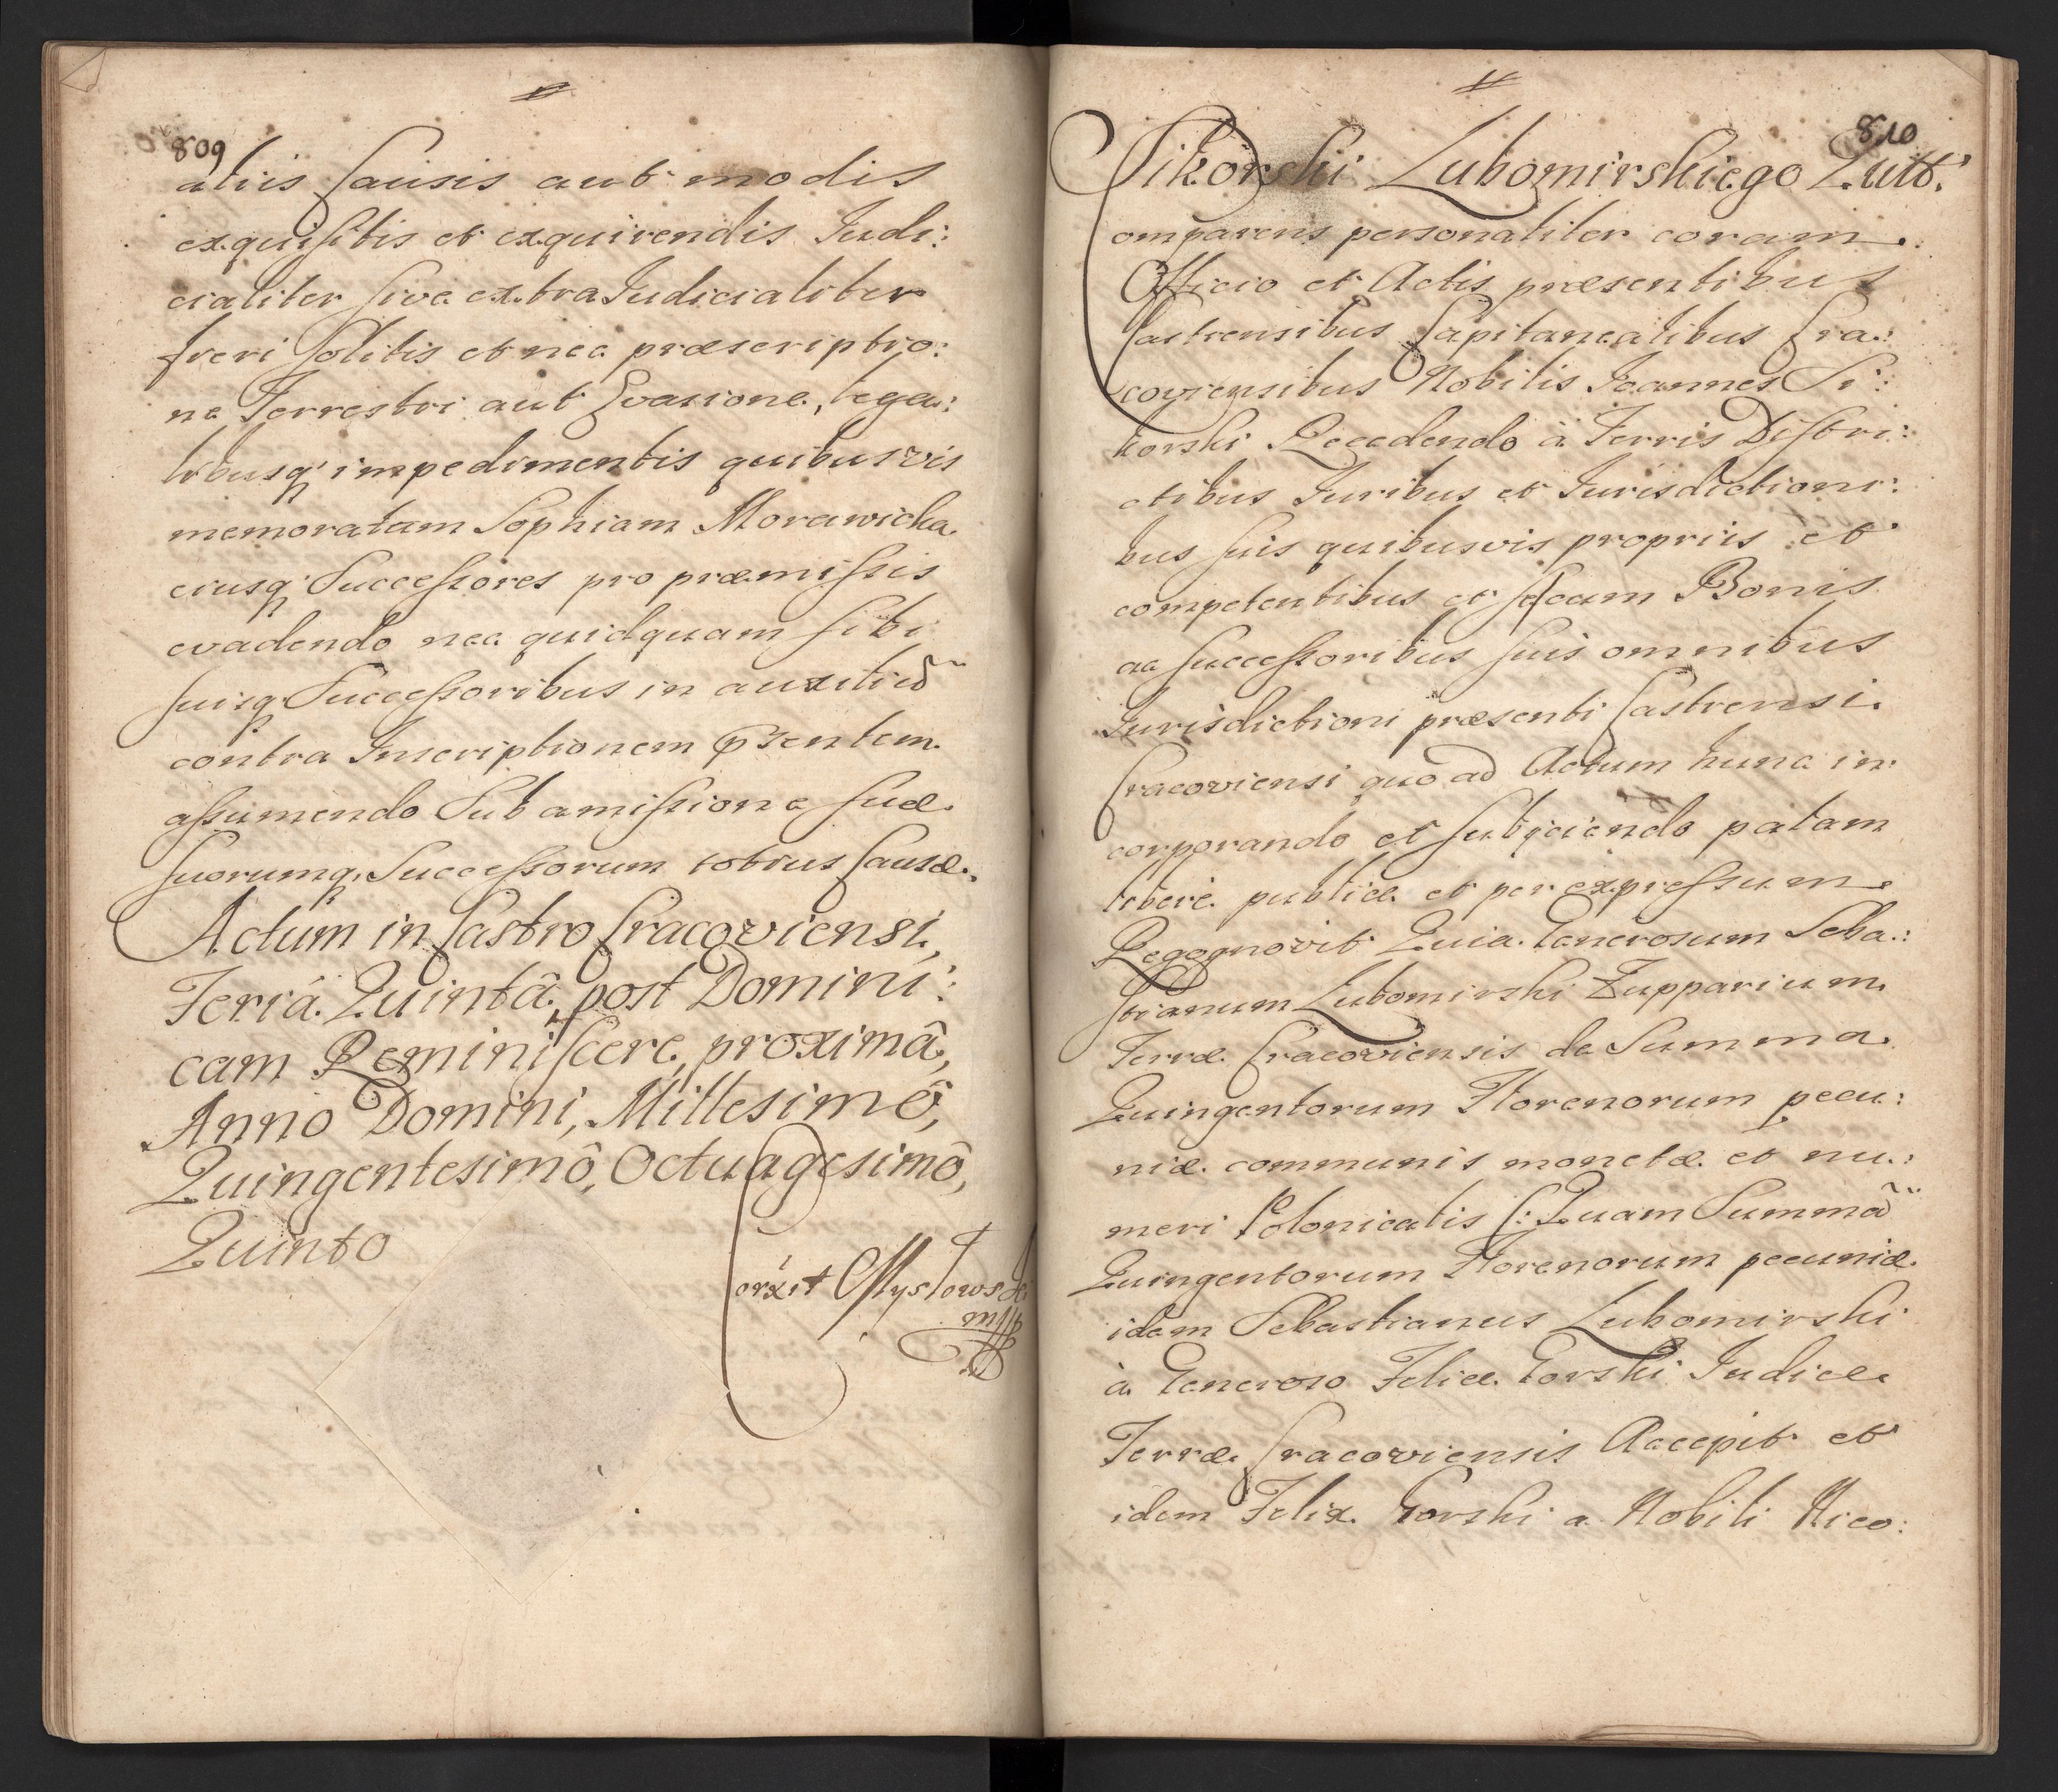 809
aliis Causis aut modis
exquisitis et exquirendis Judi:
cialiter sive extra Judicialiter
fieri solitis et nec præscriptio:
ne Terrestri aut Evasione, lega:
libusq impedimentis quibusvis
memoratam Sophiam Morawicka
eiusq Successores pro præmissis
evadendo nec quidquam sibi
suisq Successoribus in auxiliũ
contra Inscriptionem pֿsentem
assumendo Sub amissione suæ
suorumq Successorum totius Causæ.
Actum in Castro Cracoviensi,
Feriâ Quintâ, post Domini:
cam Reminiscere, proximâ,
Anno Domini, Millesimô,
Quingentesimô, Octuagesimô,
Quinto
Corxit Mystowski
mpp
810
Sikorski Lubomirskiego Quit.
Comparens personaliter coram
Officio et Actis præsentibus
Castrensibus Capitanealibus Cra:
coviensibus Nobilis Joannes Si:
korski Recedendo à Terris Distri:
ctibus Juribus et Jurisdictioni:
bus suis quibusvis propriis et
competentibus et se cum Bonis
ac successoribus suis omnibus
Jurisdictioni præsenti Castrensi
Cracoviensi quo ad Actum hunc in:
corporando et subjiciendo palam
liberè publice et per expressum
Regognovit Quia Generosum Seba:
stianum Lubomirski Zupparium
Terræ Cracoviensis de Summa
Quingentorum Florenorum pecu:
niæ communis monetæ et nu:
meri Polonicalis (: Quam Summã
Quingentorum Florenorum pecuniæ
idem Sebastianus Lubomirski
à Generoso Felice Gorski Judice
Terræ Cracoviensis Accepit et
idem Felix Gorski a Nobili Nico: